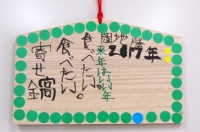 2017年
来年はいい年
食べたい。
食べたい。
寄せ鍋